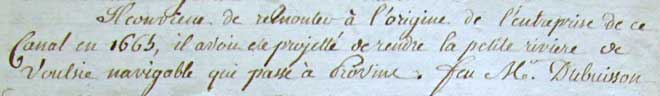 Il convient de remonter à l'origine de l'entreprise de ce
Canal en 1665, il avoit été projetté de rendre la petite riviere de
Voulsie navigable qui passe à Provins. feu Mr. Dubuisson